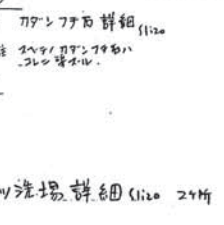 カダンフチ石 詳細 S1:20
スベテノカダンフチ石ハ
コレニ準ズル.
洗場 詳細 S1:20 2ヶ所